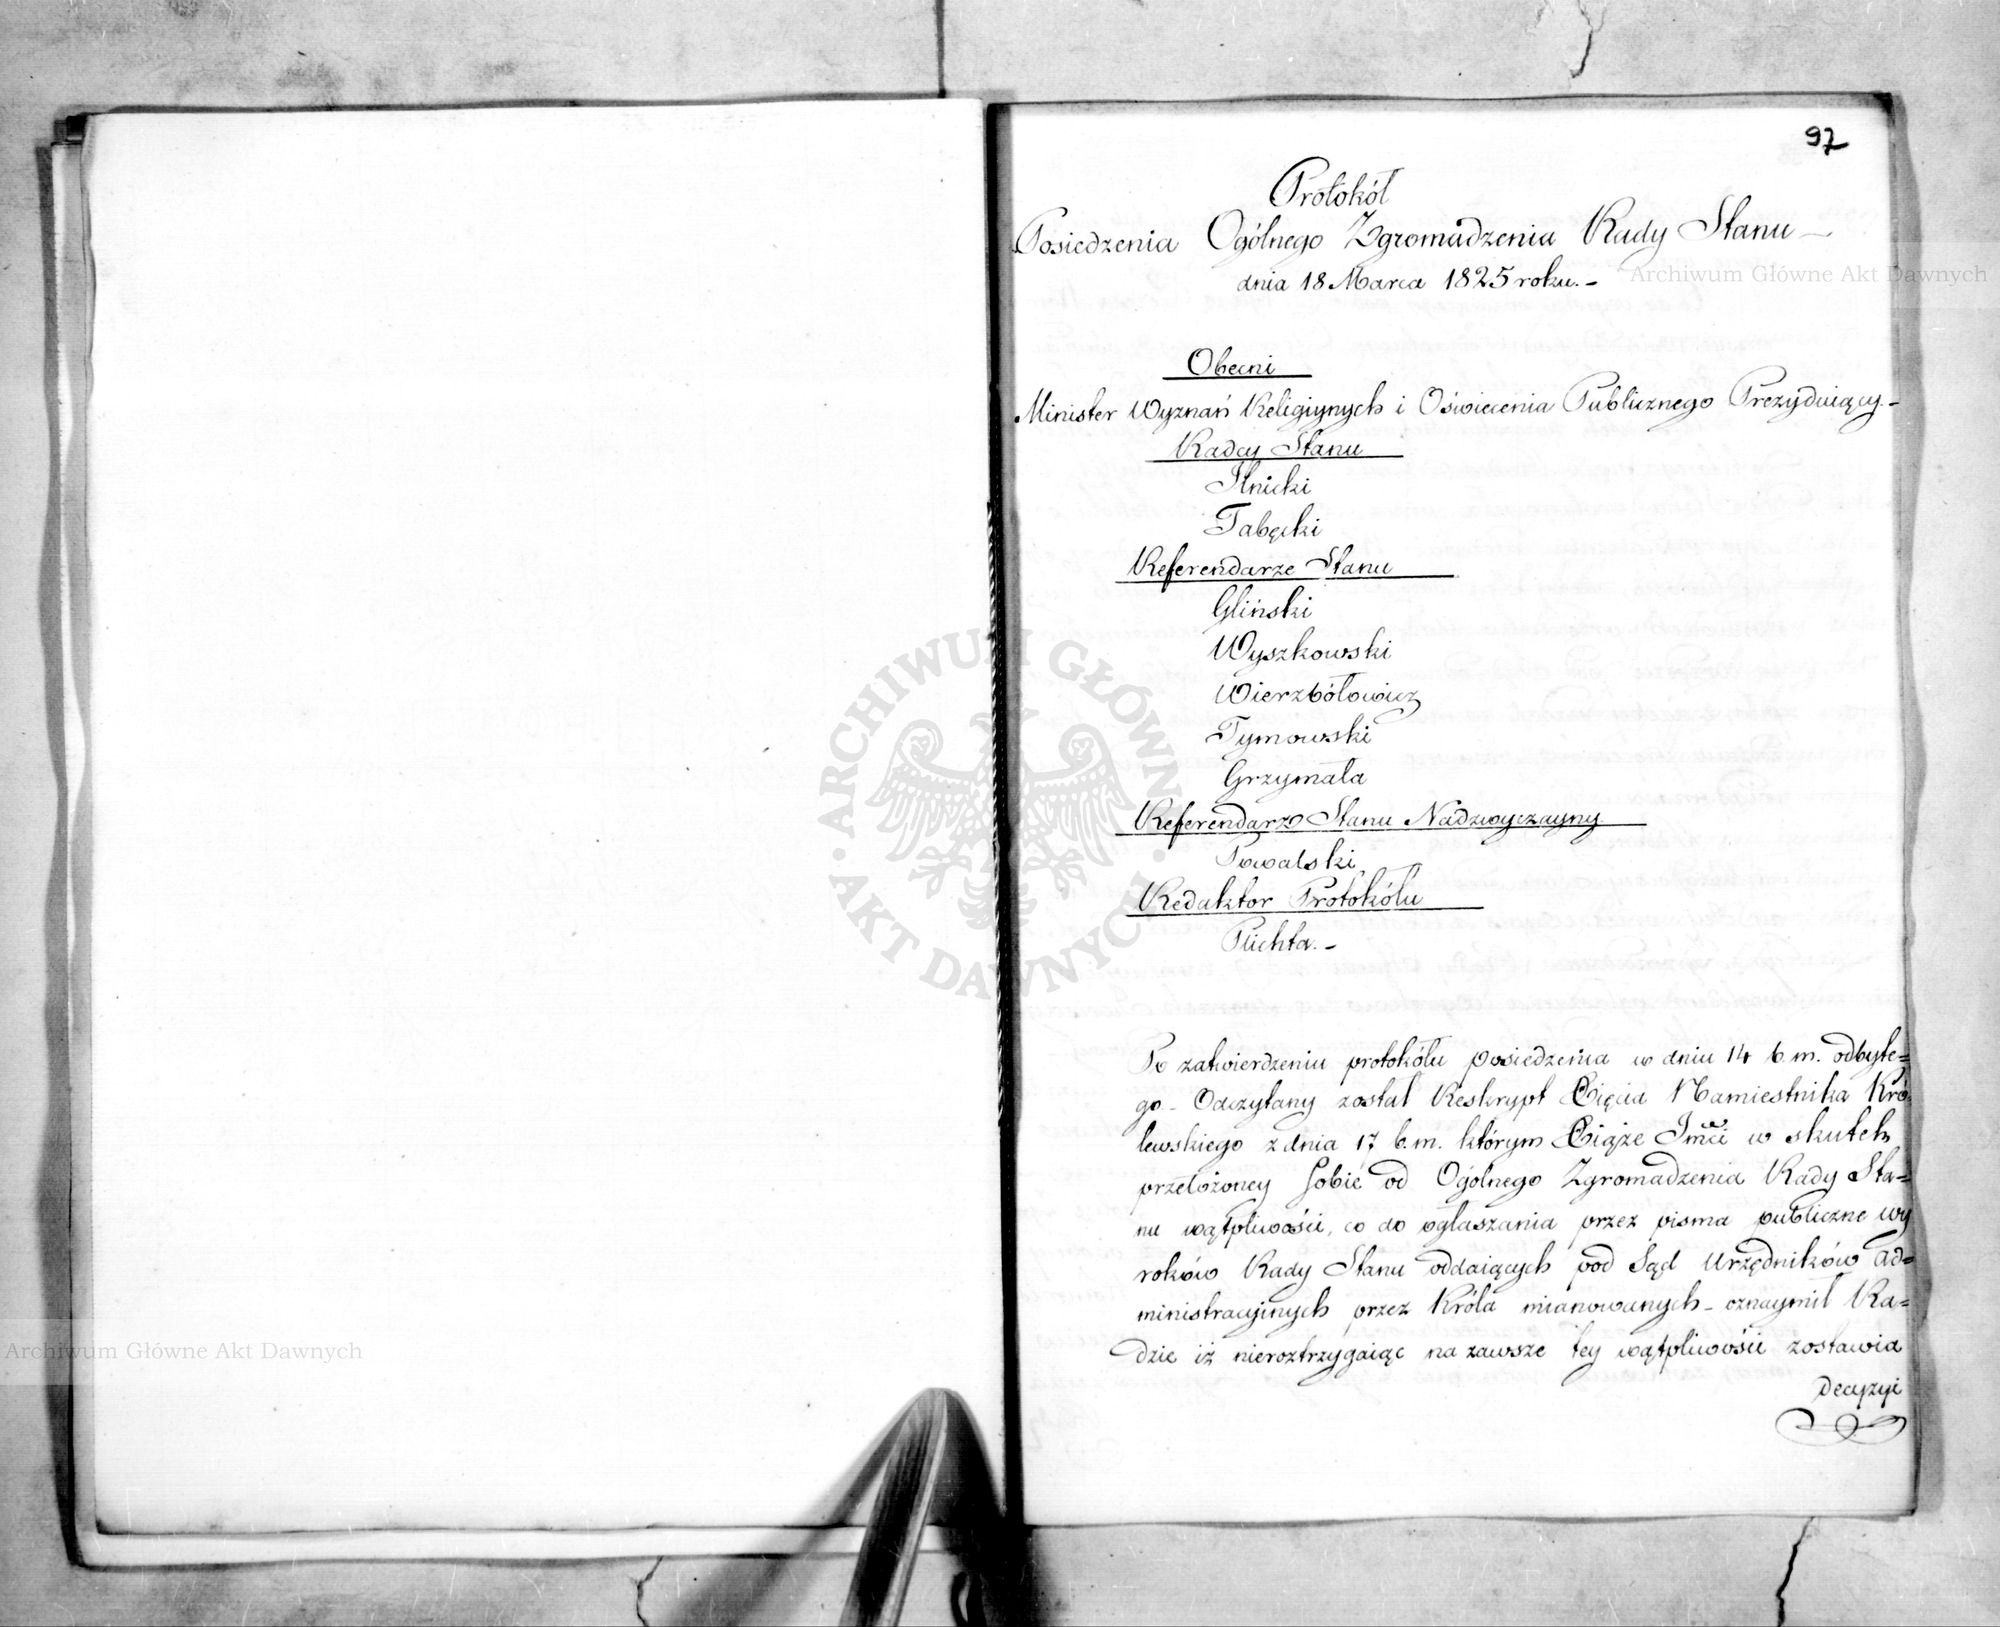 97
Protokół
Posiedzenia Ogólnego Zgromadzenia Rady Stanu
dnia 18 Marca 1825 roku. -
Archiwum Główne Akt Dawnych
Obecni
Minister Wyznań Religiynych i Oświecenia Publicznego Prezyduiący. -
Radcy Stanu
Ilnicki
Tabęcki
Referendarze Stanu
Gliński
Wyszkowski
Wierzbółowicz
Tymowski
Grzymała
Referendarz Stanu Nadzwyczayny
Kowalski
Redaktor Protokółu
Plichta. -
ARCHIWUM GŁÓWNE · AKT DAWNYCH ·
Po zatwierdzeniu protokółu posiedzenia w dniu 14 b. m. odbyte=
go - Odczytany został Reskrypt Xięcia Namiestnika Kró-
lewskiego z dnia 17 b. m. którym Xiąże Jmci w skutek
przełożoney sobie od Ogólnego Zgromadzenia Rady Sta=
nu wątpliwości, co do ogłaszania przez pisma publiczne wy
roków Rady Stanu oddaiących pod Sąd Urzędników ad=
ministracyinych przez Króla mianowanych - oznaymił Ra=
dzie iż nieroztrzygaiąc na zawsze tey wątpliwości zostawia
Decyzyi
Archiwum Główne Akt Dawnych